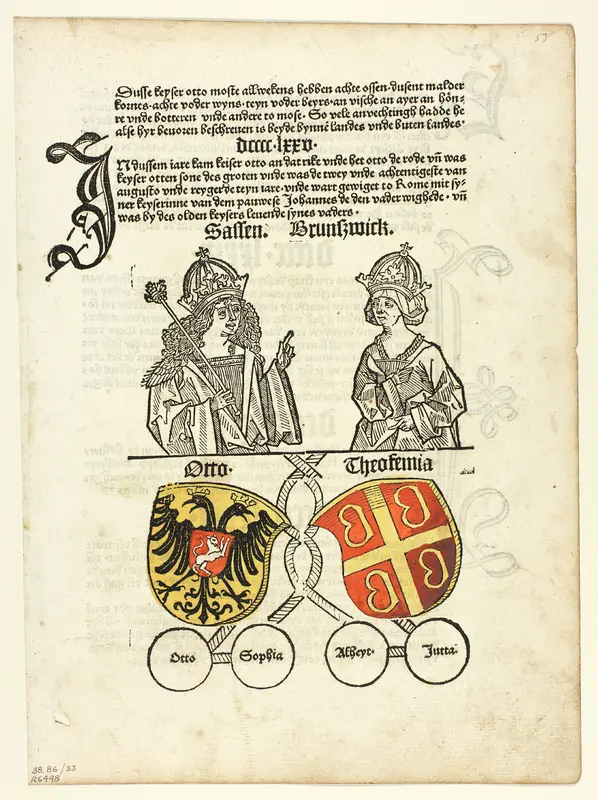 Dusse keyser otto moste allwekens hebben achte ossen·dusent malder
kornes·achte voder wyns·teyn voder beyrs·an vische an ayer an hön-
re vnde botteren vnde andere to mose· So vele anvechtingh hadde he
alse hyr beuoren beschreuen is beyde bynnē landes vnde buten landes·
dcccc·lxxv·
IN dussem iare kam keiser otto an dat rike vnde het otto de rode vn̄ was
keyser otten sone des groten vnde was de twey vnde achtentigeste van
augusto vnde reygerde teyn iare·vnde wart gewiget to Rome mit sy-
ner keyserinne van dem pauwese Johannes de den vader wighede· vn̄
was by des olden keysers leuende synes vaders·
Sassen. Brunszwick.
Otto· Theofemia
Otto Sophia Alheyt· Jutta·
38.86/33
R6498